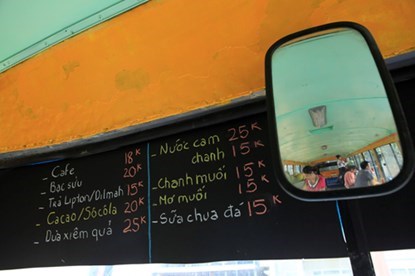 - Cafe 18K
- Bạc sưu 20K
- Trà Lipton/Dilmah 15K
- Cacao/Sôcôla 20K
- Dừa xiêm quả 25K
- Nước cam 25K
chanh 15K
- Chanh muối 15K
- Mơ muối 15K
- Sữa chua đá 15K